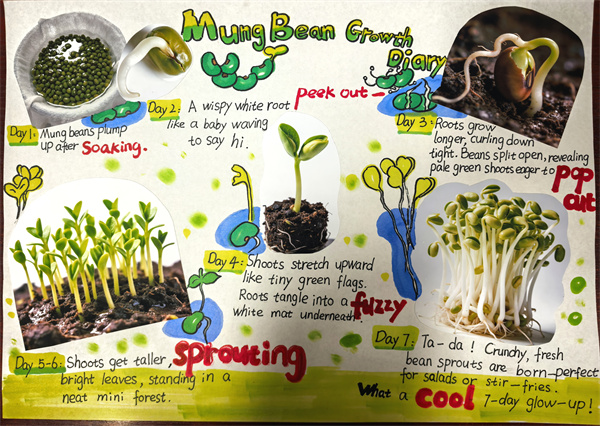 Mung Bean Growth
Diary
Day 1: Mung beans plump
up after Soaking.
Day 2: A wispy white root
like a baby waving
to say hi.
peek out
Day 3: Roots grow
longer, curling down
tight. Beans split open, revealing
pale green shoots eager to pop
out
Day 4: Shoots stretch upward
like tiny green flags.
Roots tangle into a fuzzy
white mat underneath.
Day 5-6: Shoots get taller, sprouting
bright leaves, standing in a
neat mini forest.
Day 7: Ta-da! Crunchy, fresh
bean sprouts are born-perfect
for salads or stir-fries.
What a cool 7-day glow-up!